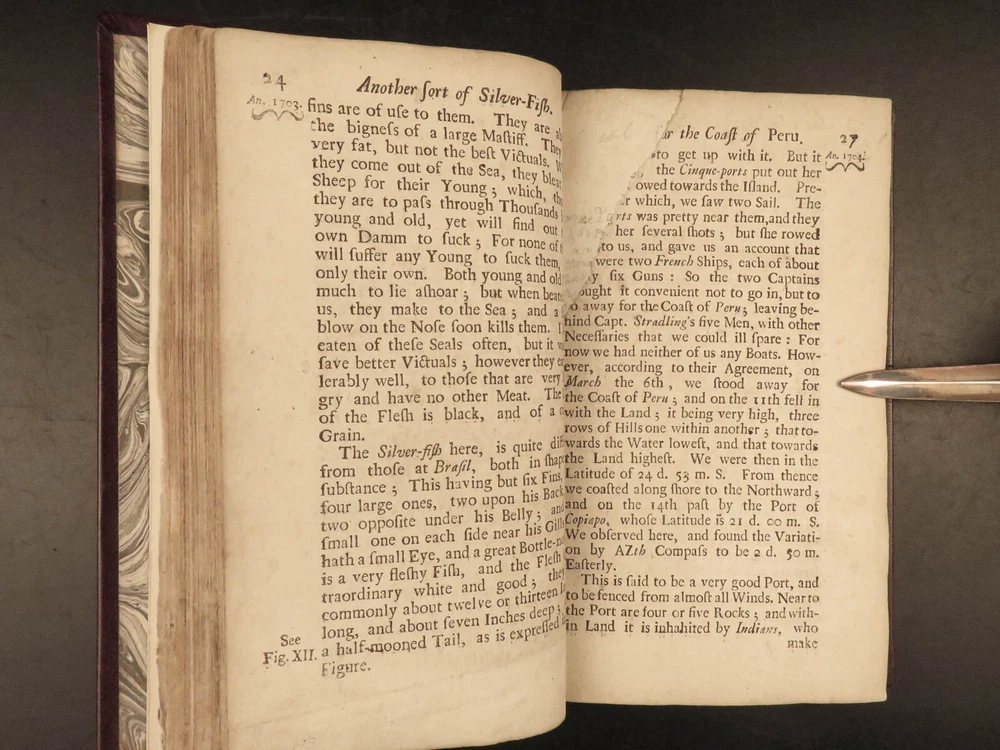 24
Another ſort of Silver-Fiſh.
An. 1703.
fins are of uſe to them. They are
the bigneſs of a large Maſtiff. They
very fat, but not the beſt Victuals.
they come out of the Sea, they bleat
Sheep for their Young; which,
they are to paſs through Thouſands
young and old, yet will find out
own Damm to ſuck; For none of
will ſuffer any Young to ſuck them,
only their own. Both young and old
much to lie aſhoar; but when
us, they make to the Sea; and a
blow on the Noſe ſoon kills them.
eaten of theſe Seals often, but it
ſave better Victuals; however they
lerably well, to thoſe that are very
gry and have no other Meat. The
of the Fleſh is black, and of a
Grain.
The Silver-fiſh here, is quite
from thoſe at Braſil, both in
ſubſtance; This having but ſix Fins,
four large ones, two upon his Back
two oppoſite under his Belly; and
ſmall one on each ſide near his
hath a ſmall Eye, and a great
is a very fleſhy Fiſh, and the Fleſh
traordinary white and good; they
commonly about twelve or thirteen
long, and about ſeven Inches deep;
See
Fig. XII.
a half-mooned Tail, as is expreſſed
Figure.
the Coaſt of Peru.
27
to get up with it. But it
An. 1704.
the Cinque-ports put out her
owed towards the Iſland. Pre-
which, we ſaw two Sail. The
was pretty near them, and they
her ſeveral ſhots; but ſhe rowed
to us, and gave us an account that
were two French Ships, each of about
ſix Guns: So the two Captains
ought it convenient not to go in, but to
go away for the Coaſt of Peru; leaving be-
hind Capt. Stradling's five Men, with other
Neceſſaries that we could ill ſpare: For
now we had neither of us any Boats. How-
ever, according to their Agreement, on
March the 6th, we ſtood away for
the Coaſt of Peru; and on the 11th fell in
with the Land; it being very high, three
rows of Hills one within another; that to-
wards the Water loweſt, and that towards
the Land higheſt. We were then in the
Latitude of 24 d. 53 m. S. From thence
we coaſted along ſhore to the Northward;
and on the 14th paſt by the Port of
Copiapo, whoſe Latitude is 21 d. 00 m. S.
We obſerved here, and found the Variati-
on by AZth Compaſs to be 2 d. 50 m.
Eaſterly.
This is ſaid to be a very good Port, and
to be fenced from almoſt all Winds. Near to
the Port are four or five Rocks; and with-
in Land it is inhabited by Indians, who
make